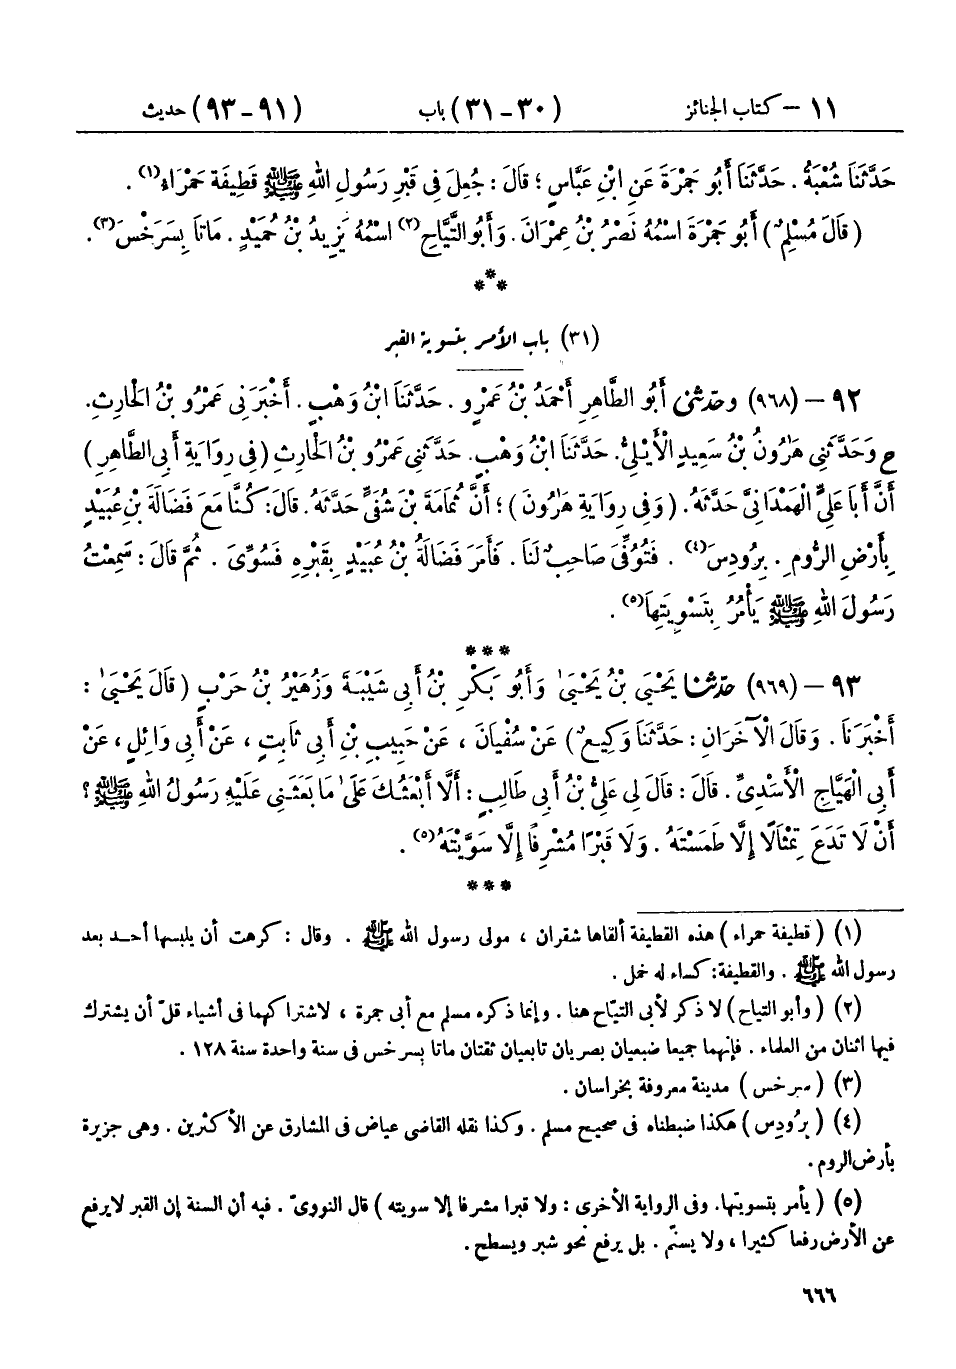 ١١ – كتاب الجنائز (٣٠ – ٣١) باب (٩١ – ٩٣) حديث
حَدَّثَنَا شُعْبَةُ . حَدَّثَنَا أَبُو جَمْرَةَ عَنِ ابْنِ عَبَّاسٍ ؛ قَالَ : جُعِلَ فِي قَبْرِ رَسُولِ اللهِ ﷺ قَطِيفَةٌ حَمْرَاءُ(١) .
( قَالَ مُسْلِمٌ ) أَبُو جَمْرَةَ اسْمُهُ نَصْرُ بْنُ عِمْرَانَ . وَأَبُو التَّيَّاحِ(٢) اسْمُهُ يَزِيدُ بْنُ حُمَيْدٍ . مَاتَا بِسَرَخْسَ(٣) .
***
(٣١) باب الأمر بتسوية القبر
٩٢ – (٩٦٨) وحَدَّثَنِي أَبُو الطَّاهِرِ أَحْمَدُ بْنُ عَمْرٍو . حَدَّثَنَا ابْنُ وَهْبٍ . أَخْبَرَنِي عَمْرُو بْنُ الْحَارِثِ .
ح وَحَدَّثَنِي هَارُونُ بْنُ سَعِيدٍ الْأَيْلِيُّ . حَدَّثَنَا ابْنُ وَهْبٍ . حَدَّثَنِي عَمْرُو بْنُ الْحَارِثِ ( فِي رِوَايَةِ أَبِي الطَّاهِرِ )
أَنَّ أَبَا عَلِيٍّ الْهَمْدَانِيَّ حَدَّثَهُ . ( وَفِي رِوَايَةِ هَارُونَ ) ؛ أَنَّ ثُمَامَةَ بْنَ شُفَيٍّ حَدَّثَهُ . قَالَ : كُنَّا مَعَ فَضَالَةَ بْنِ عُبَيْدٍ
بِأَرْضِ الرُّومِ . بِرُودِسَ(٤) . فَتُوُفِّيَ صَاحِبٌ لَنَا . فَأَمَرَ فَضَالَةُ بْنُ عُبَيْدٍ بِقَبْرِهِ فَسُوِّيَ . ثُمَّ قَالَ : سَمِعْتُ
رَسُولَ اللهِ ﷺ يَأْمُرُ بِتَسْوِيَتِهَا(٥) .
***
٩٣ – (٩٦٩) حَدَّثَنَا يَحْيَىٰ بْنُ يَحْيَىٰ وَأَبُو بَكْرِ بْنُ أَبِي شَيْبَةَ وَزُهَيْرُ بْنُ حَرْبٍ ( قَالَ يَحْيَىٰ :
أَخْبَرَنَا . وَقَالَ الْآخَرَانِ : حَدَّثَنَا وَكِيعٌ ) عَنْ سُفْيَانَ ، عَنْ حَبِيبِ بْنِ أَبِي ثَابِتٍ ، عَنْ أَبِي وَائِلٍ ، عَنْ
أَبِي الْهَيَّاجِ الْأَسَدِيِّ . قَالَ : قَالَ لِي عَلِيُّ بْنُ أَبِي طَالِبٍ : أَلَّا أَبْعَثُكَ عَلَىٰ مَا بَعَثَنِي عَلَيْهِ رَسُولُ اللهِ ﷺ ؟
أَنْ لَا تَدَعَ تِمْثَالًا إِلَّا طَمَسْتَهُ . وَلَا قَبْرًا مُشْرِفًا إِلَّا سَوَّيْتَهُ(٥) .
***
(١) ( قطيفة حمراء ) هذه القطيفة ألقاها شقران ، مولى رسول الله ﷺ . وقال : كرهت أن يلبسها أحـد بعد
رسول الله ﷺ . والقطيفة : كساء له خمل .
(٢) ( وأبو التياح ) لا ذكر لأبي التيّاح هنا . وإنما ذكره مسلم مع أبي جمرة ، لاشتراكهما في أشياء قلّ أن يشترك
فيها اثنان من العلماء . فإنهما جميعا ضبعيان بصريان تابعيان ثقتان ماتا بسرخس في سنة واحدة سنة ١٢٨ .
(٣) ( سرخس ) مدينة معروفة بخراسان .
(٤) ( بِرُودِس ) هكذا ضبطناه في صحيح مسلم . وكذا نقله القاضي عياض في المشارق عن الأكثرين . وهي جزيرة
بأرض الروم .
(٥) ( يأمر بتسويتها . وفي الرواية الأخرى : ولا قبرا مشرفا إلا سويته ) قال النوويّ . فيه أن السنة إن القبر لا يرفع
عن الأرض رفعا كثيرا ، ولا يسنّم . بل يرفع نحو شبر ويسطح .
٦٦٦